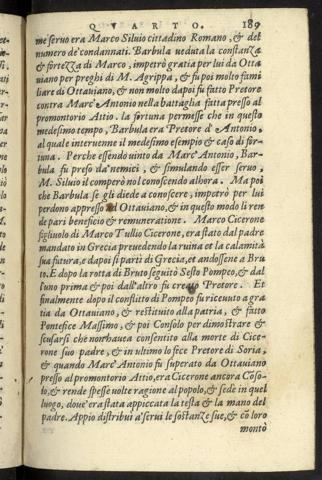 QVARTO. 189
me seruo era Marco Siluio cittadino Romano, & del
numero de' condannati. Barbula ueduta la constanza
& fortezza di Marco, impetrò gratia per lui da Otta
uiano per preghi di M. Agrippa, & fu poi molto fami
liare di Ottauiano, & non molto dapoi fu fatto Pretore
contra Marc'Antonio nella battaglia fatta presso al
promontorio Attio. la fortuna permesse che in questo
medesimo tempo, Barbula era Pretore d'Antonio,
al quale interuenne il medesimo esempio & caso di for-
tuna. Perche essendo uinto da Marc'Antonio, Bar-
bula fu preso da'nemici, & simulando esser seruo,
M. Siluio il comperò nol conoscendo alhora. Ma poi
che Barbula se gli diede a conoscere, impetrò per lui
perdono appresso ad Ottauiano, & in questo modo li ren
de pari beneficio & remuneratione. Marco Cicerone
figliuolo di Marco Tullio Cicerone, era stato dal padre
mandato in Grecia preuedendo la ruina et la calamità
sua futura, e dapoi si partì di Grecia, et andossene a Bru
to. E dopo la rotta di Bruto seguitò Sesto Pompeo, & dal
l'uno prima & poi dall'altro fu creato Pretore. Et
finalmente dopo il conflitto di Pompeo fu riceuuto a gra
tia da Ottauiano, & restituito alla patria, & fatto
Pontefice Massimo, & poi Consolo per dimostrare &
scusarsi che non haueua consentito alla morte di Cice-
rone suo padre, & in ultimo lo fece Pretore di Soria,
& quando Marc'Antonio fu superato da Ottauiano
presso al promontorio Attio, era Cicerone ancora Conso-
lo, & rende spesse uolte ragione al popolo, & sede in quel
luogo, doue era stata appiccata la testa & la mano del
padre. Appio distribuì a'serui le sostanze sue, & cō loro
montò